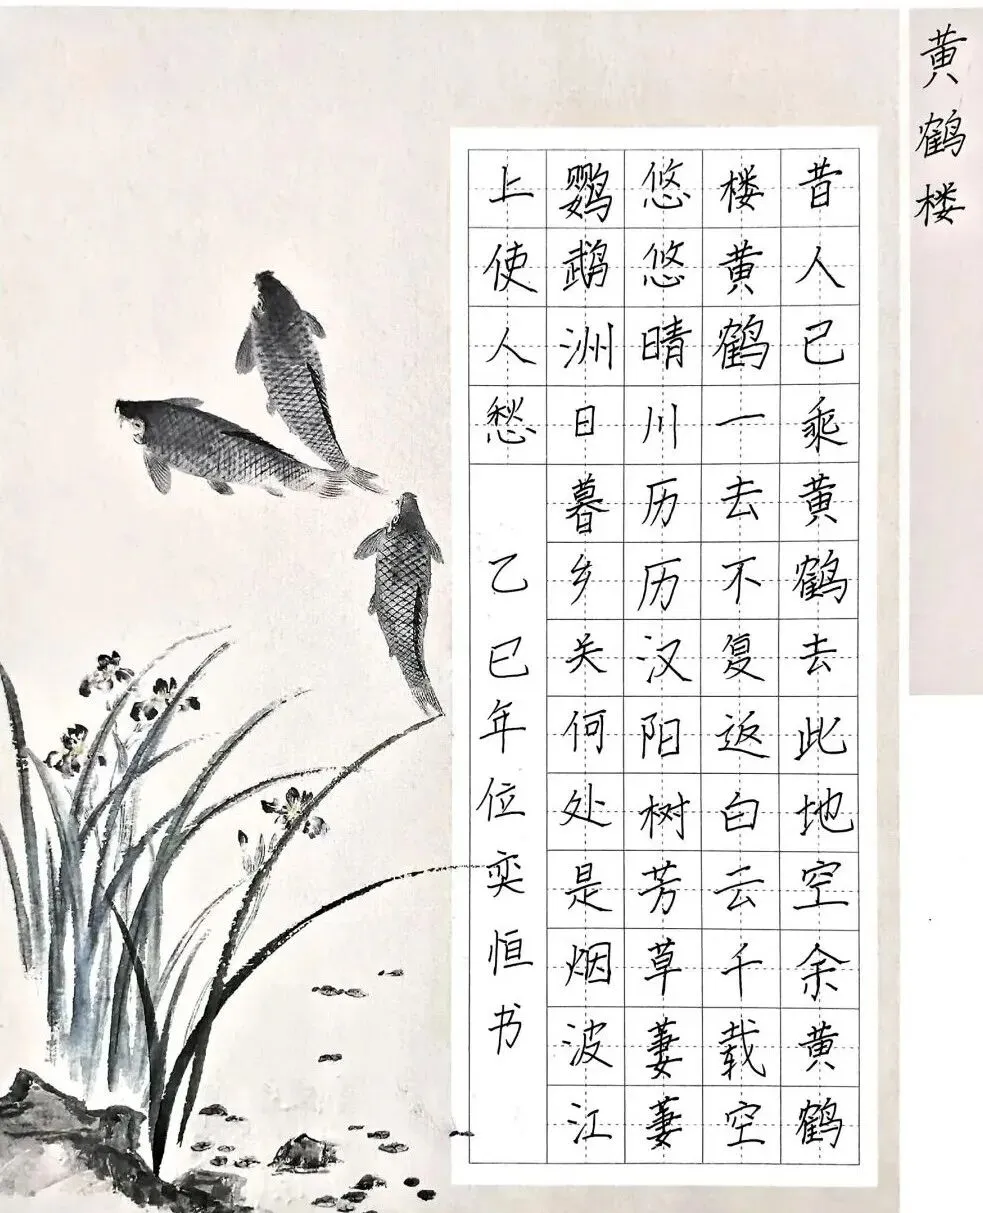 黄鹤楼
昔人已乘黄鹤去此地空余黄鹤
楼黄鹤一去不复返白云千载空
悠悠晴川历历汉阳树芳草萋萋
鹦鹉洲日暮乡关何处是烟波江
上使人愁
乙巳年位奕恒书